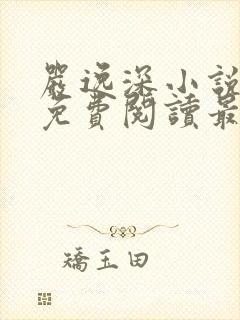 嚴逸深小說
免費閱讀最
矯玉田